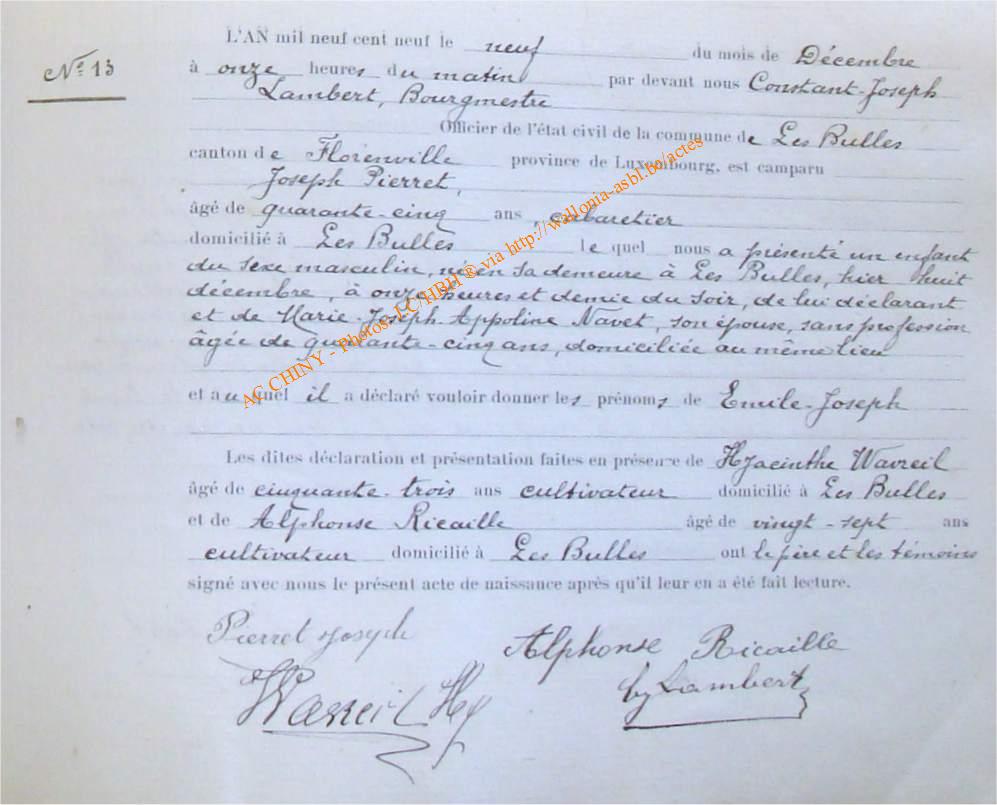 L'AN mil neuf cent neuf le neuf du mois de Décembre
Nº 13
à onze heures du matin par devant nous Constant-Joseph
Lambert, Bourgmestre
Officier de l'état civil de la commune de Les Bulles
canton de Florenville province de Luxembourg, est comparu
Joseph Pierret,
âgé de quarante-cinq ans, cabaretier
domicilié à Les Bulles lequel nous a présenté un enfant
du sexe masculin, né en sa demeure à Les Bulles, hier huit
décembre, à onze heures et demie du soir, de lui déclarant
et de Marie-Joseph-Appoline Navet, son épouse, sans profession
âgée de quarante-cinq ans, domiciliée au même lieu
et auquel il a déclaré vouloir donner les prénoms de Emile-Joseph
Les dites déclaration et présentation faites en présence de Hyacinthe Wavreil
âgé de cinquante-trois ans cultivateur domicilié à Les Bulles
et de Alphonse Ricaille âgé de vingt-sept ans
cultivateur domicilié à Les Bulles ont le père et les témoins
signé avec nous le présent acte de naissance après qu'il leur en a été fait lecture.
Pierret Joseph
Alphonse Ricaille
Wavreil Hy
Lambert
AC CHINY - Photos: LC/HBH ® via http://wallonia-asbl.be/actes